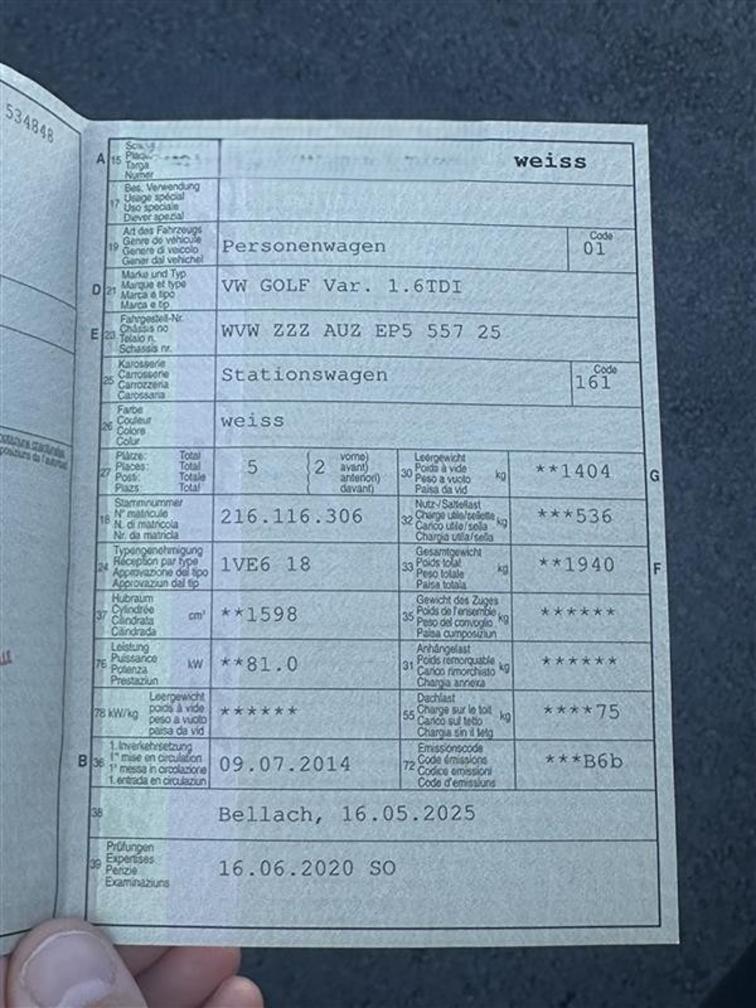 534848
A 15 Targa Numer weiss
17 Bes. Verwendung
Usage spécial
Uso speciale
Diever spezial
19 Art des Fahrzeugs
Genre de véhicule
Genere di veicolo
Gener dal vehichel
Personenwagen
Code
01
D 21 Marke und Typ
Marque et type
Marca e tipo
Marca e tip
VW GOLF Var. 1.6TDI
E 23 Fahrgestell-Nr.
Châssis no
Telaio n.
Schassis nr.
WVW ZZZ AUZ EP5 557 25
25 Karosserie
Carrosserie
Carrozzeria
Carossaria
Stationswagen
Code
161
26 Farbe
Couleur
Colore
Colur
weiss
27 Plätze: Total
Places: Total
Posti: Totale
Plazs: Total
5 2
vorne)
avant)
anteriori)
davant)
30 Leergewicht
Poids à vide
Peso a vuoto
Paisa da vid
kg
**1404 G
18 Stammnummer
N° matricule
N. di matricola
Nr. da matricla
216.116.306
32 Nutz-/Sattellast
Charge utile/sellette
Carico utile/sella
Chargia utila/sella
kg
***536
24 Typengenehmigung
Réception par type
Approvazione del tipo
Approvaziun dal tip
1VE6 18
33 Gesamtgewicht
Poids total
Peso totale
Paisa totala
kg
**1940 F
37 Hubraum
Cylindrée
Cilindrata
Cilindrada
cm³
**1598
35 Gewicht des Zuges
Poids de l'ensemble
Peso del convoglio
Paisa cumposiziun
kg
******
76 Leistung
Puissance
Potenza
Prestaziun
kW
**81.0
31 Anhängelast
Poids remorquable
Carico rimorchiato
Chargia annexa
kg
******
78 kW/kg
Leergewicht
poids à vide
peso a vuoto
paisa da vid
******
55 Dachlast
Charge sur le toit
Carico sul tetto
Chargia sin il tetg
kg
****75
B 36 1. Inverkehrsetzung
1re mise en circulation
1a messa in circolazione
1. entrada en circulaziun
09.07.2014
72 Emissionscode
Code émissions
Codice emissioni
Code d'emissiuns
***B6b
38 Bellach, 16.05.2025
39 Prüfungen
Expertises
Perizie
Examinaziuns
16.06.2020 SO